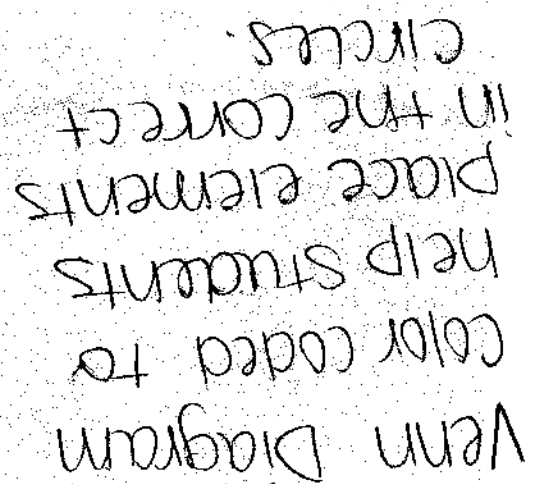 Venn Diagram
color coded to
help students
place elements
in the correct
circles.